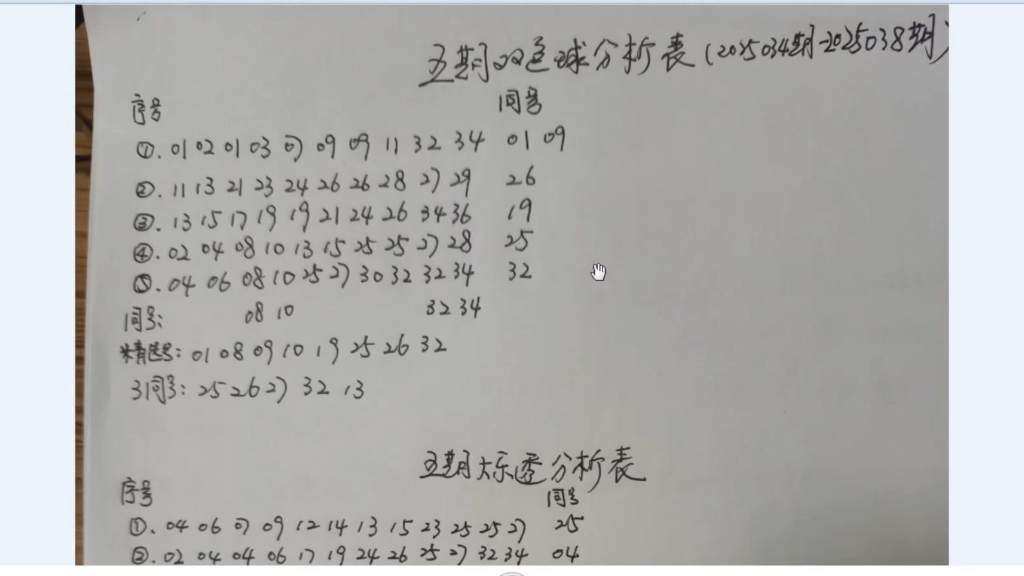 五期双色球分析表(2025034期-2025038期)
序号 同号
①. 01 02 01 03 07 09 09 11 32 34 01 09
②. 11 13 21 23 24 26 26 28 27 29 26
③. 13 15 17 19 19 21 24 26 34 36 19
④. 02 04 08 10 13 15 25 25 27 28 25
⑤. 04 06 08 10 25 27 30 32 32 34 32
同号: 08 10 32 34
精选号: 01 08 09 10 19 25 26 32
3同号: 25 26 27 32 13
五期大乐透分析表
序号 同号
①. 04 06 07 09 12 14 13 15 23 25 25 27 25
②. 02 04 04 06 17 19 24 26 25 27 32 34 04